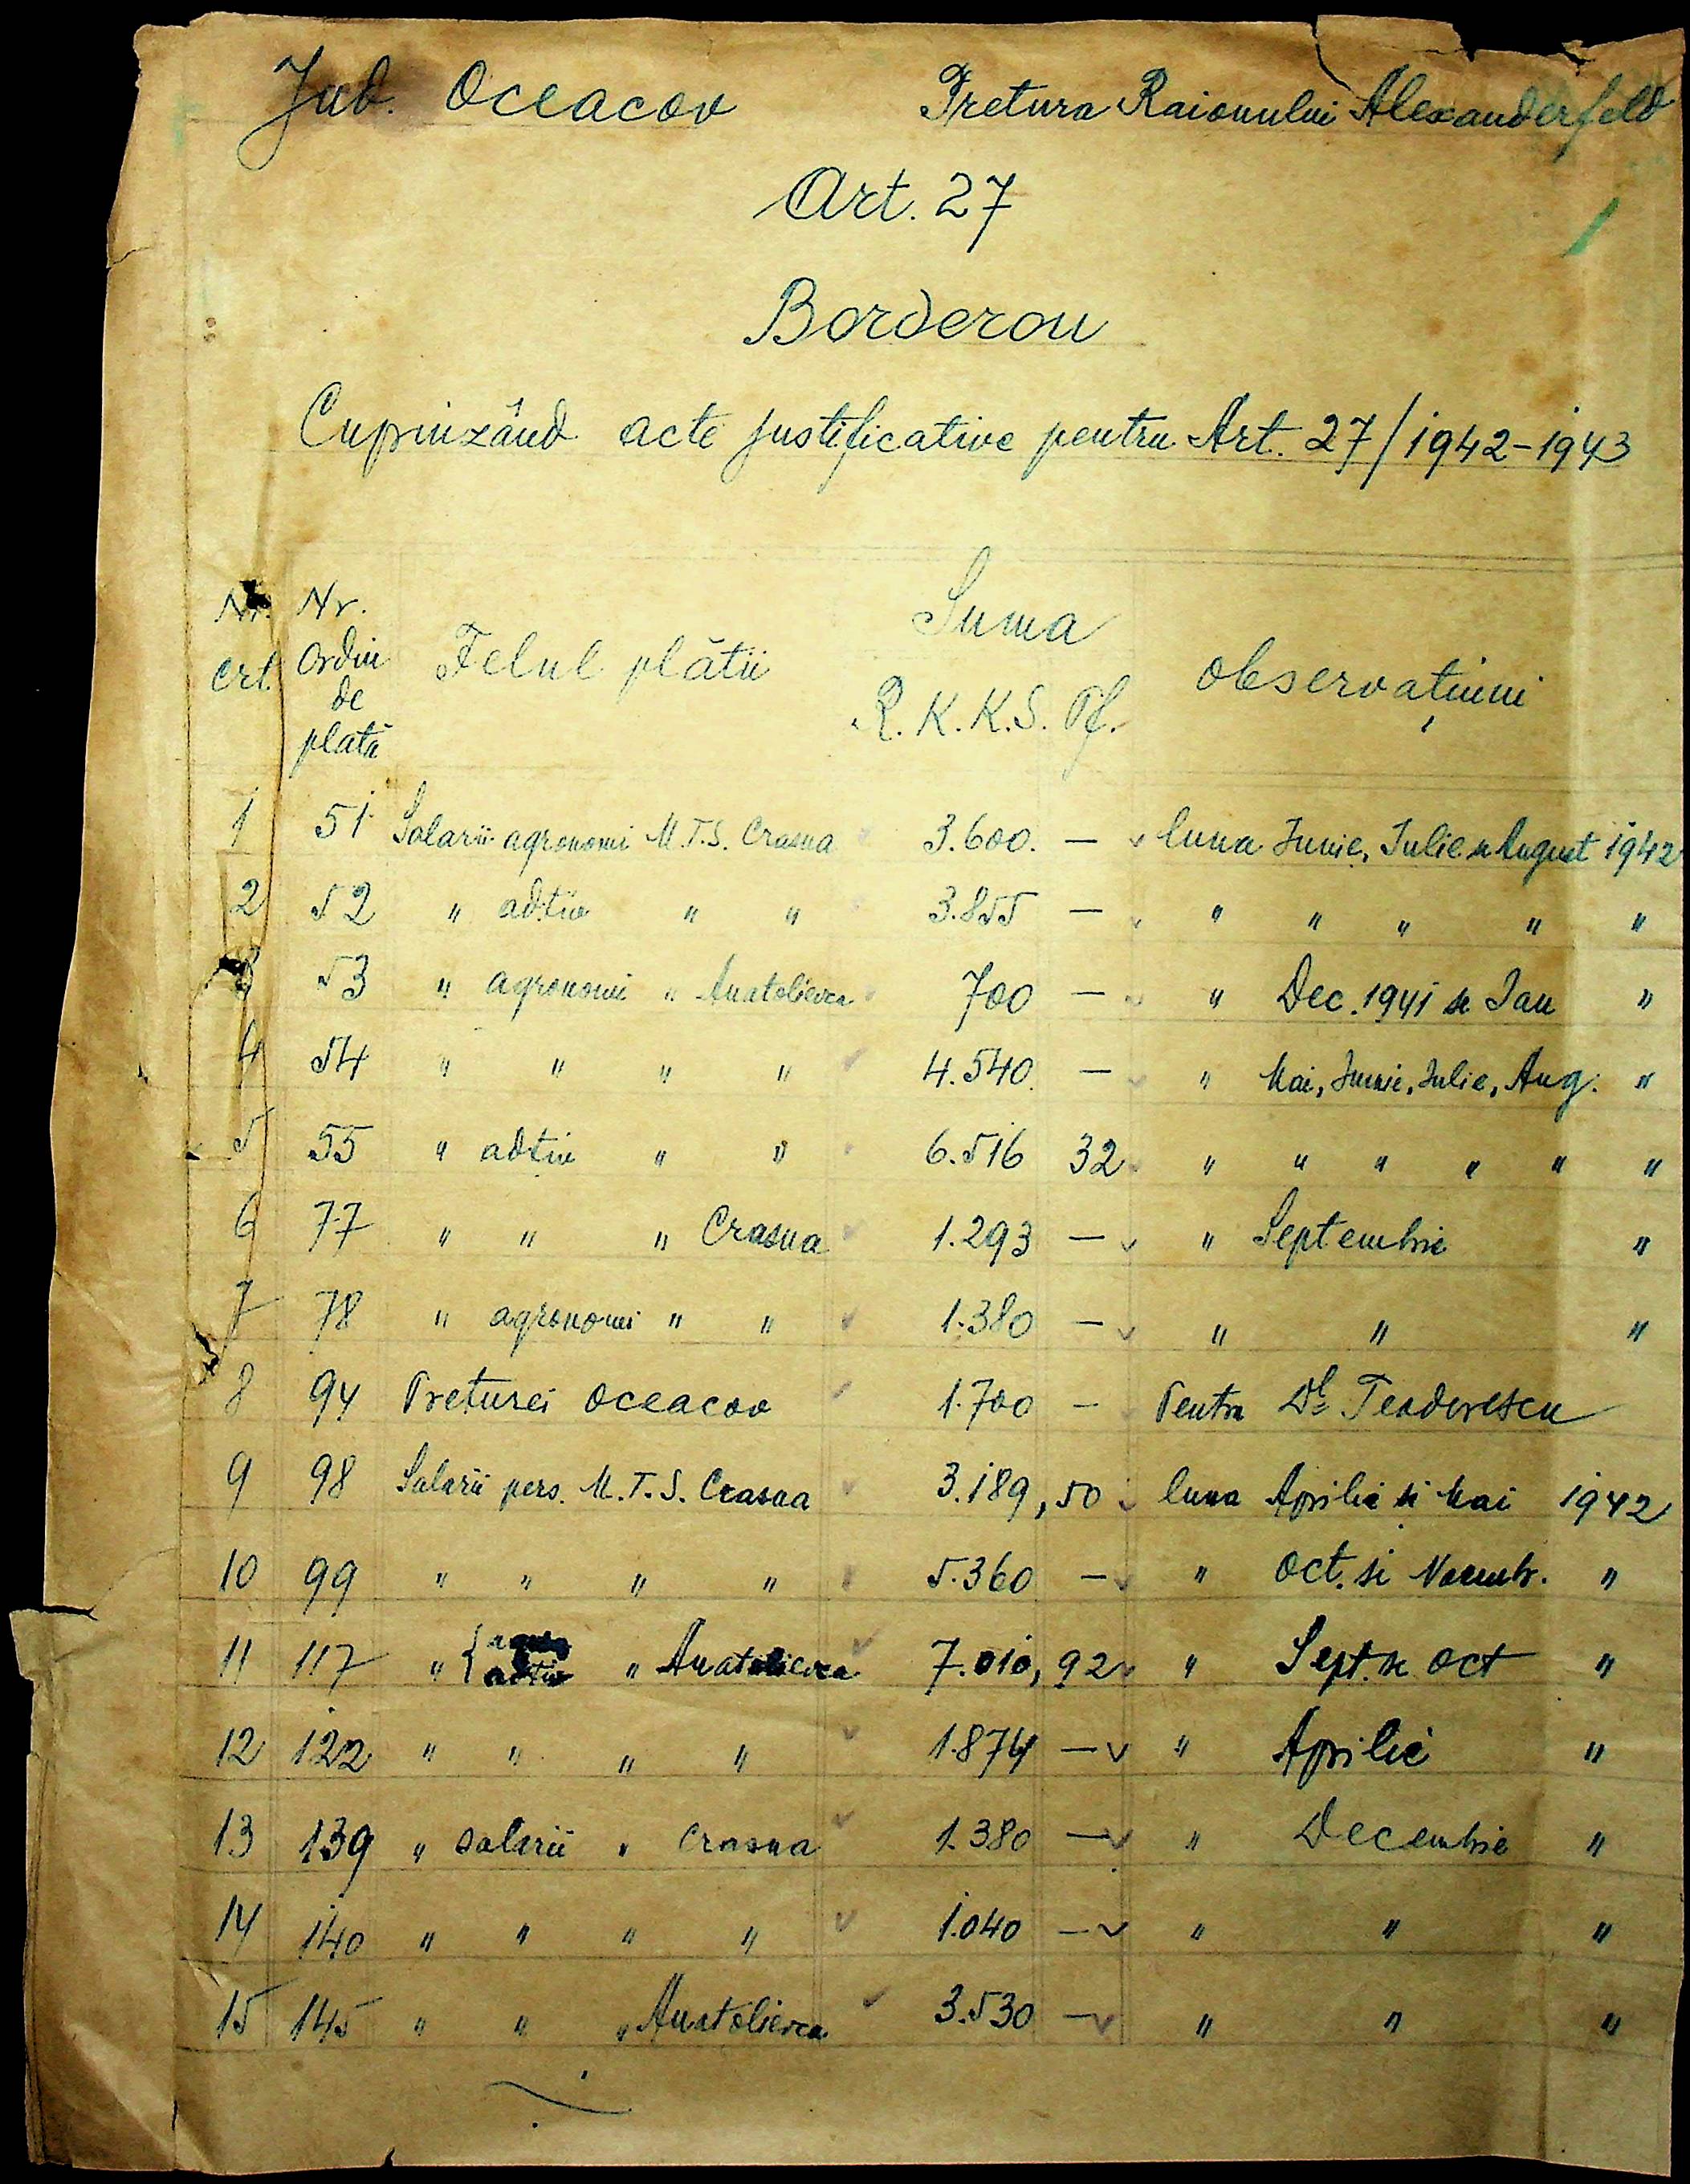 Jud. Oceacov Pretura Raionului Alexanderfeld
Art. 27
1
Borderou
Cuprinzând acte justificative pentru Art. 27/1942-1943
Nr. crt. Nr. Ordin de plată Felul plătii Suma R.K.K.S. Pf. Observațiuni
1 51 Salarii agronomi M.T.S. Crasna 3.600. — luna Iunie, Iulie si August 1942
2 52 " adtiv " " 3.855 — " " " " "
3 53 " agronomi " Anatolievca 700 — " Dec. 1941 si Ian "
4 54 " " " " 4.540. — " Mai, Iunie, Iulie, Aug. "
5 55 " adtiv " " 6.516 32 " " " " " "
6 77 " " " Crasna 1.293 — " Septembrie "
7 78 " agronomi " " 1.380 — " " "
8 94 Preturei Oceacov 1.700 — Pentru Dl Teodorescu
9 98 Salarii pers. M.T.S. Crasna 3.189,50 luna Aprilie si Mai 1942
10 99 " " " " 5.360 — " Oct. si Noembr. "
11 117 " { adtiv " Anatolievca 7.010,92 " Sept. si Oct "
12 122 " " " " 1.874 — " Aprilie "
13 139 " salarii " Crasna 1.380 — " Decembrie "
14 140 " " " " 1.040 — " " "
15 145 " " " Anatolievca 3.530 — " " "